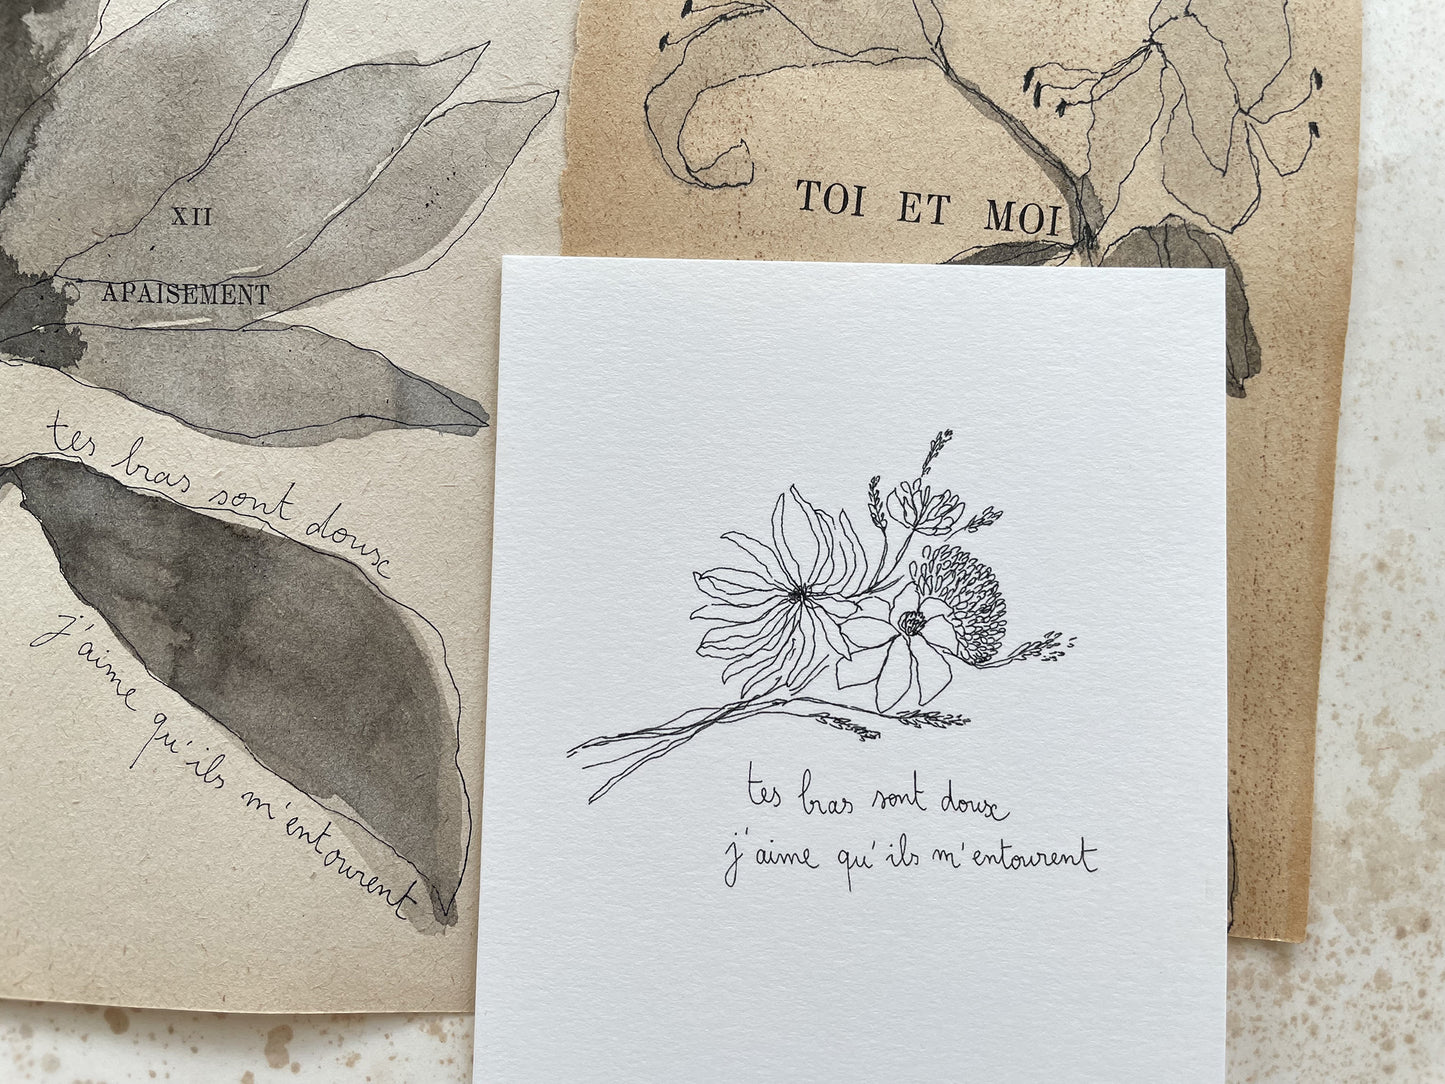 XII
APAISEMENT
tes bras sont doux
j'aime qu'ils m'entourent
TOI ET MOI
tes bras sont doux
j'aime qu'ils m'entourent